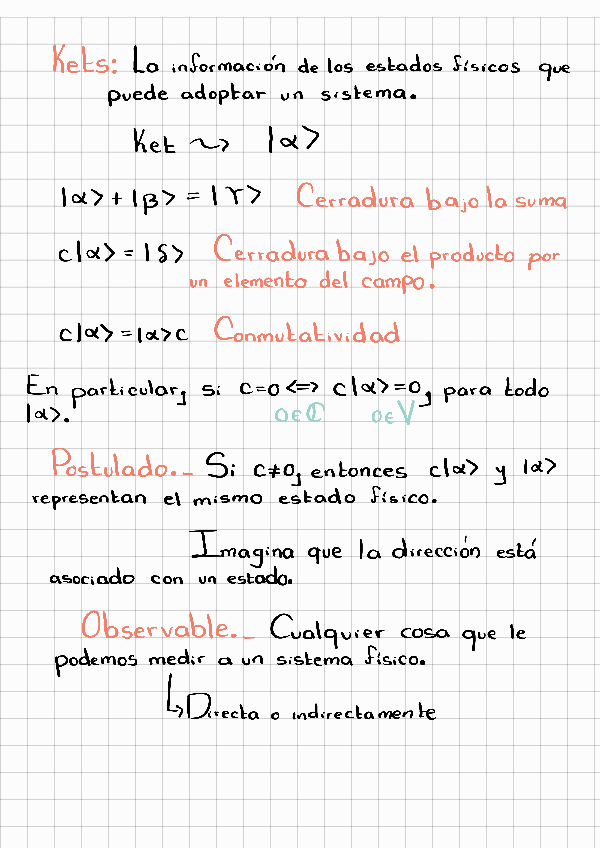 Kets: La información de los estados físicos que
puede adoptar un sistema.
Ket ⤳ |α>
|α> + |β> = |γ> Cerradura bajo la suma
c|α> = |δ> Cerradura bajo el producto por
un elemento del campo.
c|α> = |α>c Conmutatividad
En particular, si c=0 <=> c|α>=0, para todo
0∈ℂ 0∈V
|α>.
Postulado._ Si c≠0, entonces c|α> y |α>
representan el mismo estado físico.
Imagina que la dirección está
asociado con un estado.
Observable._ Cualquier cosa que le
podemos medir a un sistema físico.
↳ Directa o indirectamente